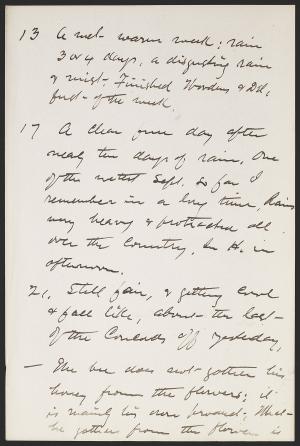 13 A wet warm week; rain
3 or 4 days, a disgusting rain
& mist. Finished Wooden &
first of the week.
17 A clear fine day after
nearly ten days of rain. One
of the wettest Sept. so far I
remember in a long time, Rains
very heavy & protracted all
over the Country. In H. in
afternoon.
21. Still fair, & getting cool
& fall like, about the last
of the Concords off yesterday,
— The bee does not gather his
honey from the flowers; it
is mainly his own product; What
he gathers from the flowers is